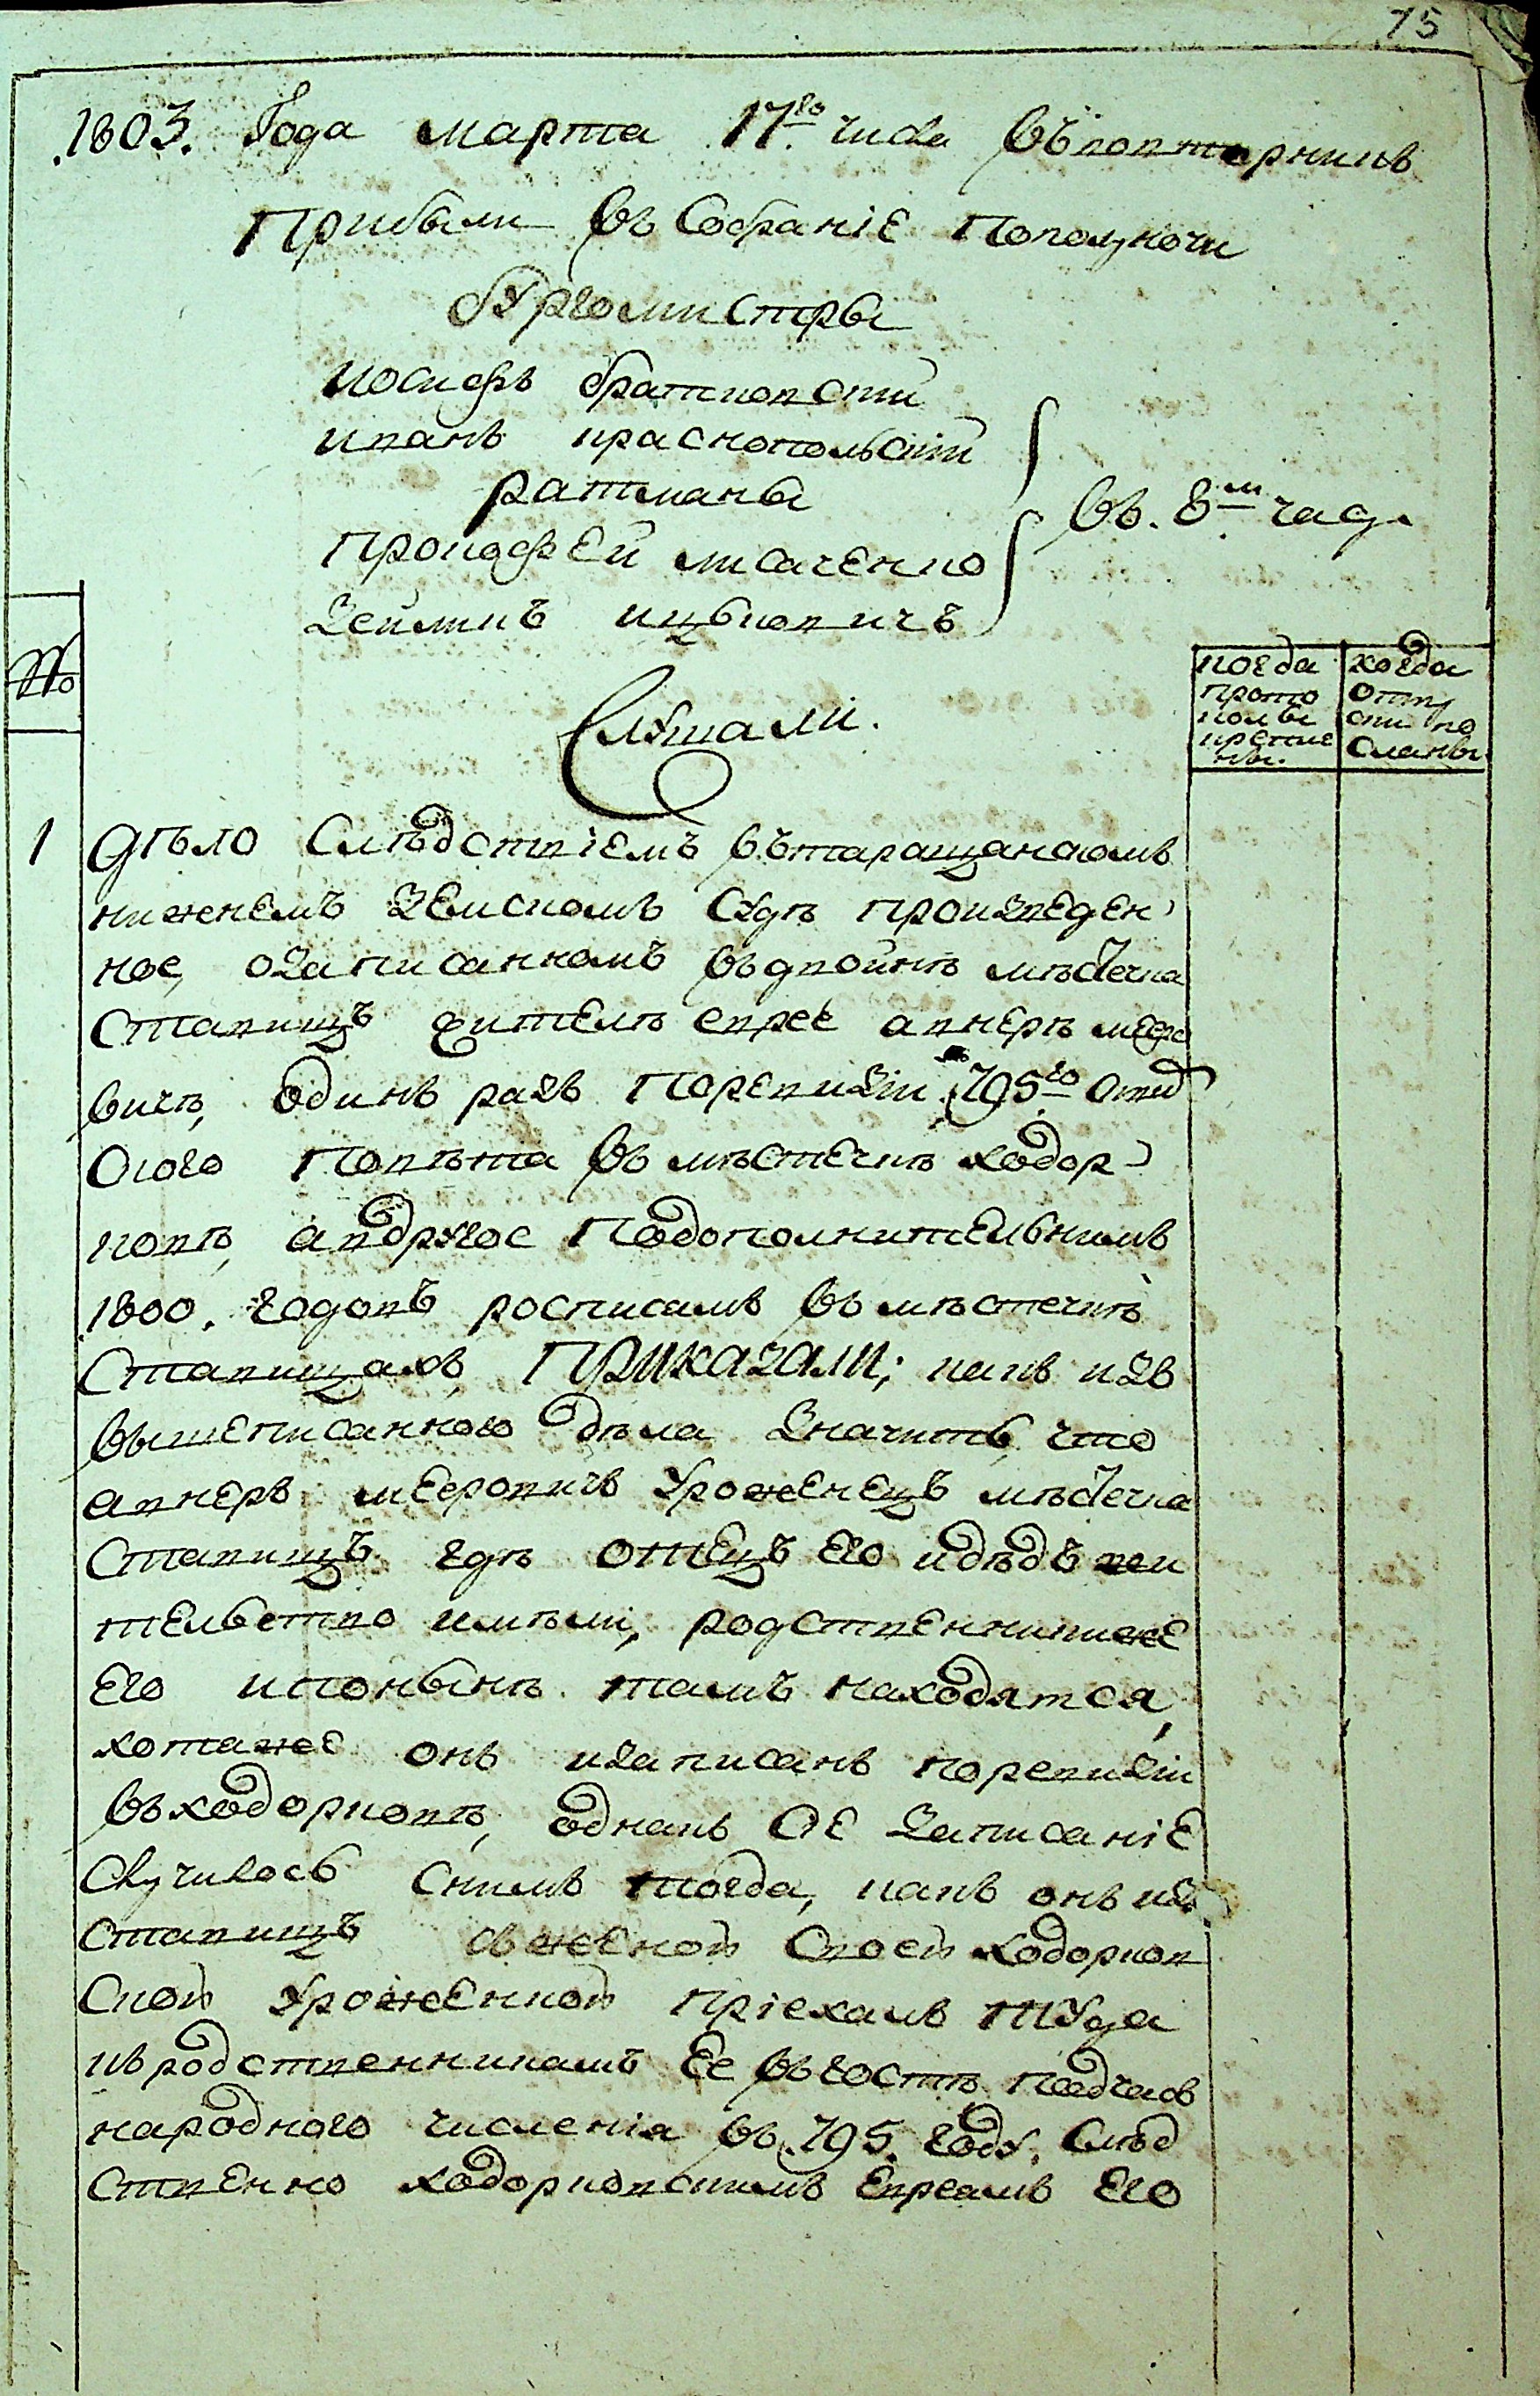 75
.1803. Года марта 17.го числа Въ вовторникъ
Прибыли Въ Собраніе Пополуночи
бургомистры
иосифъ братковскій
иванъ краснопольскій
ратманы
Прокофей лисаченко
Зейликъ ицковичъ
въ. 8.м часу
№
когда прото колы крепле ны.
когда отпу ски по сланы.
Слушали.
1
дѣло Слѣдствіемъ вътаращанскомъ
нижнемъ Земскомъ Судѣ произведен
ное, озаписанномъ въдвойнѣ мѣстечка
Ставищъ жителѣ евреѣ авнерѣ меєро
вичѣ, одинъ разъ Поревизіи 795.го Сквир
Скаго Повѣта Въ мѣстечкѣ ходор
ковѣ, авдругое Подополнительнимъ
1800. годовъ росписамъ въ мѣстечкѣ
Ставищахъ, Приказали; какъ изъ
вышеписанного дѣла Значитъ, что
авнеръ мееровичъ Уроженецъ мѣстечка
Ставищъ гдѣ отецъ Его идѣдъ жи
тельство имѣли, родственникиже
Его ипонынѣ тамъ находятся,
хотяже онъ изаписанъ поревизіи
въходорковѣ, однакъ Сіе Записаніе
Случилось Снимъ тогда, какъ онъ из
Ставищъ Сженой Своей ходорков
Ской Уроженкой Пріехалъ туда
къродственникамъ Ее въгостѣ Подчасъ
народного численія въ 795. году. Слѣд
Ственно ходорковскимъ Евреамъ Его